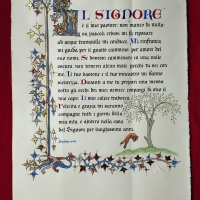 IL SIGNORE
è il mio pastore: non manco di nulla;
su pascoli erbosi mi fa riposare
ad acque tranquille mi conduce. Mi rinfranca,
mi guida per il giusto cammino, per amore del
suo nome. Se dovessi camminare in una valle
oscura, non temerei alcun male, perché tu sei con
me. Il tuo bastone e il tuo vincastro mi danno
sicurezza. Davanti a me tu prepari una mensa
sotto gli occhi dei miei nemici; cospargi di olio il
mio capo. Il mio calice trabocca.
Felicità e grazia mi saranno
compagne tutti i giorni della
mia vita, e abiterò nella casa
del Signore per lunghissimi anni.